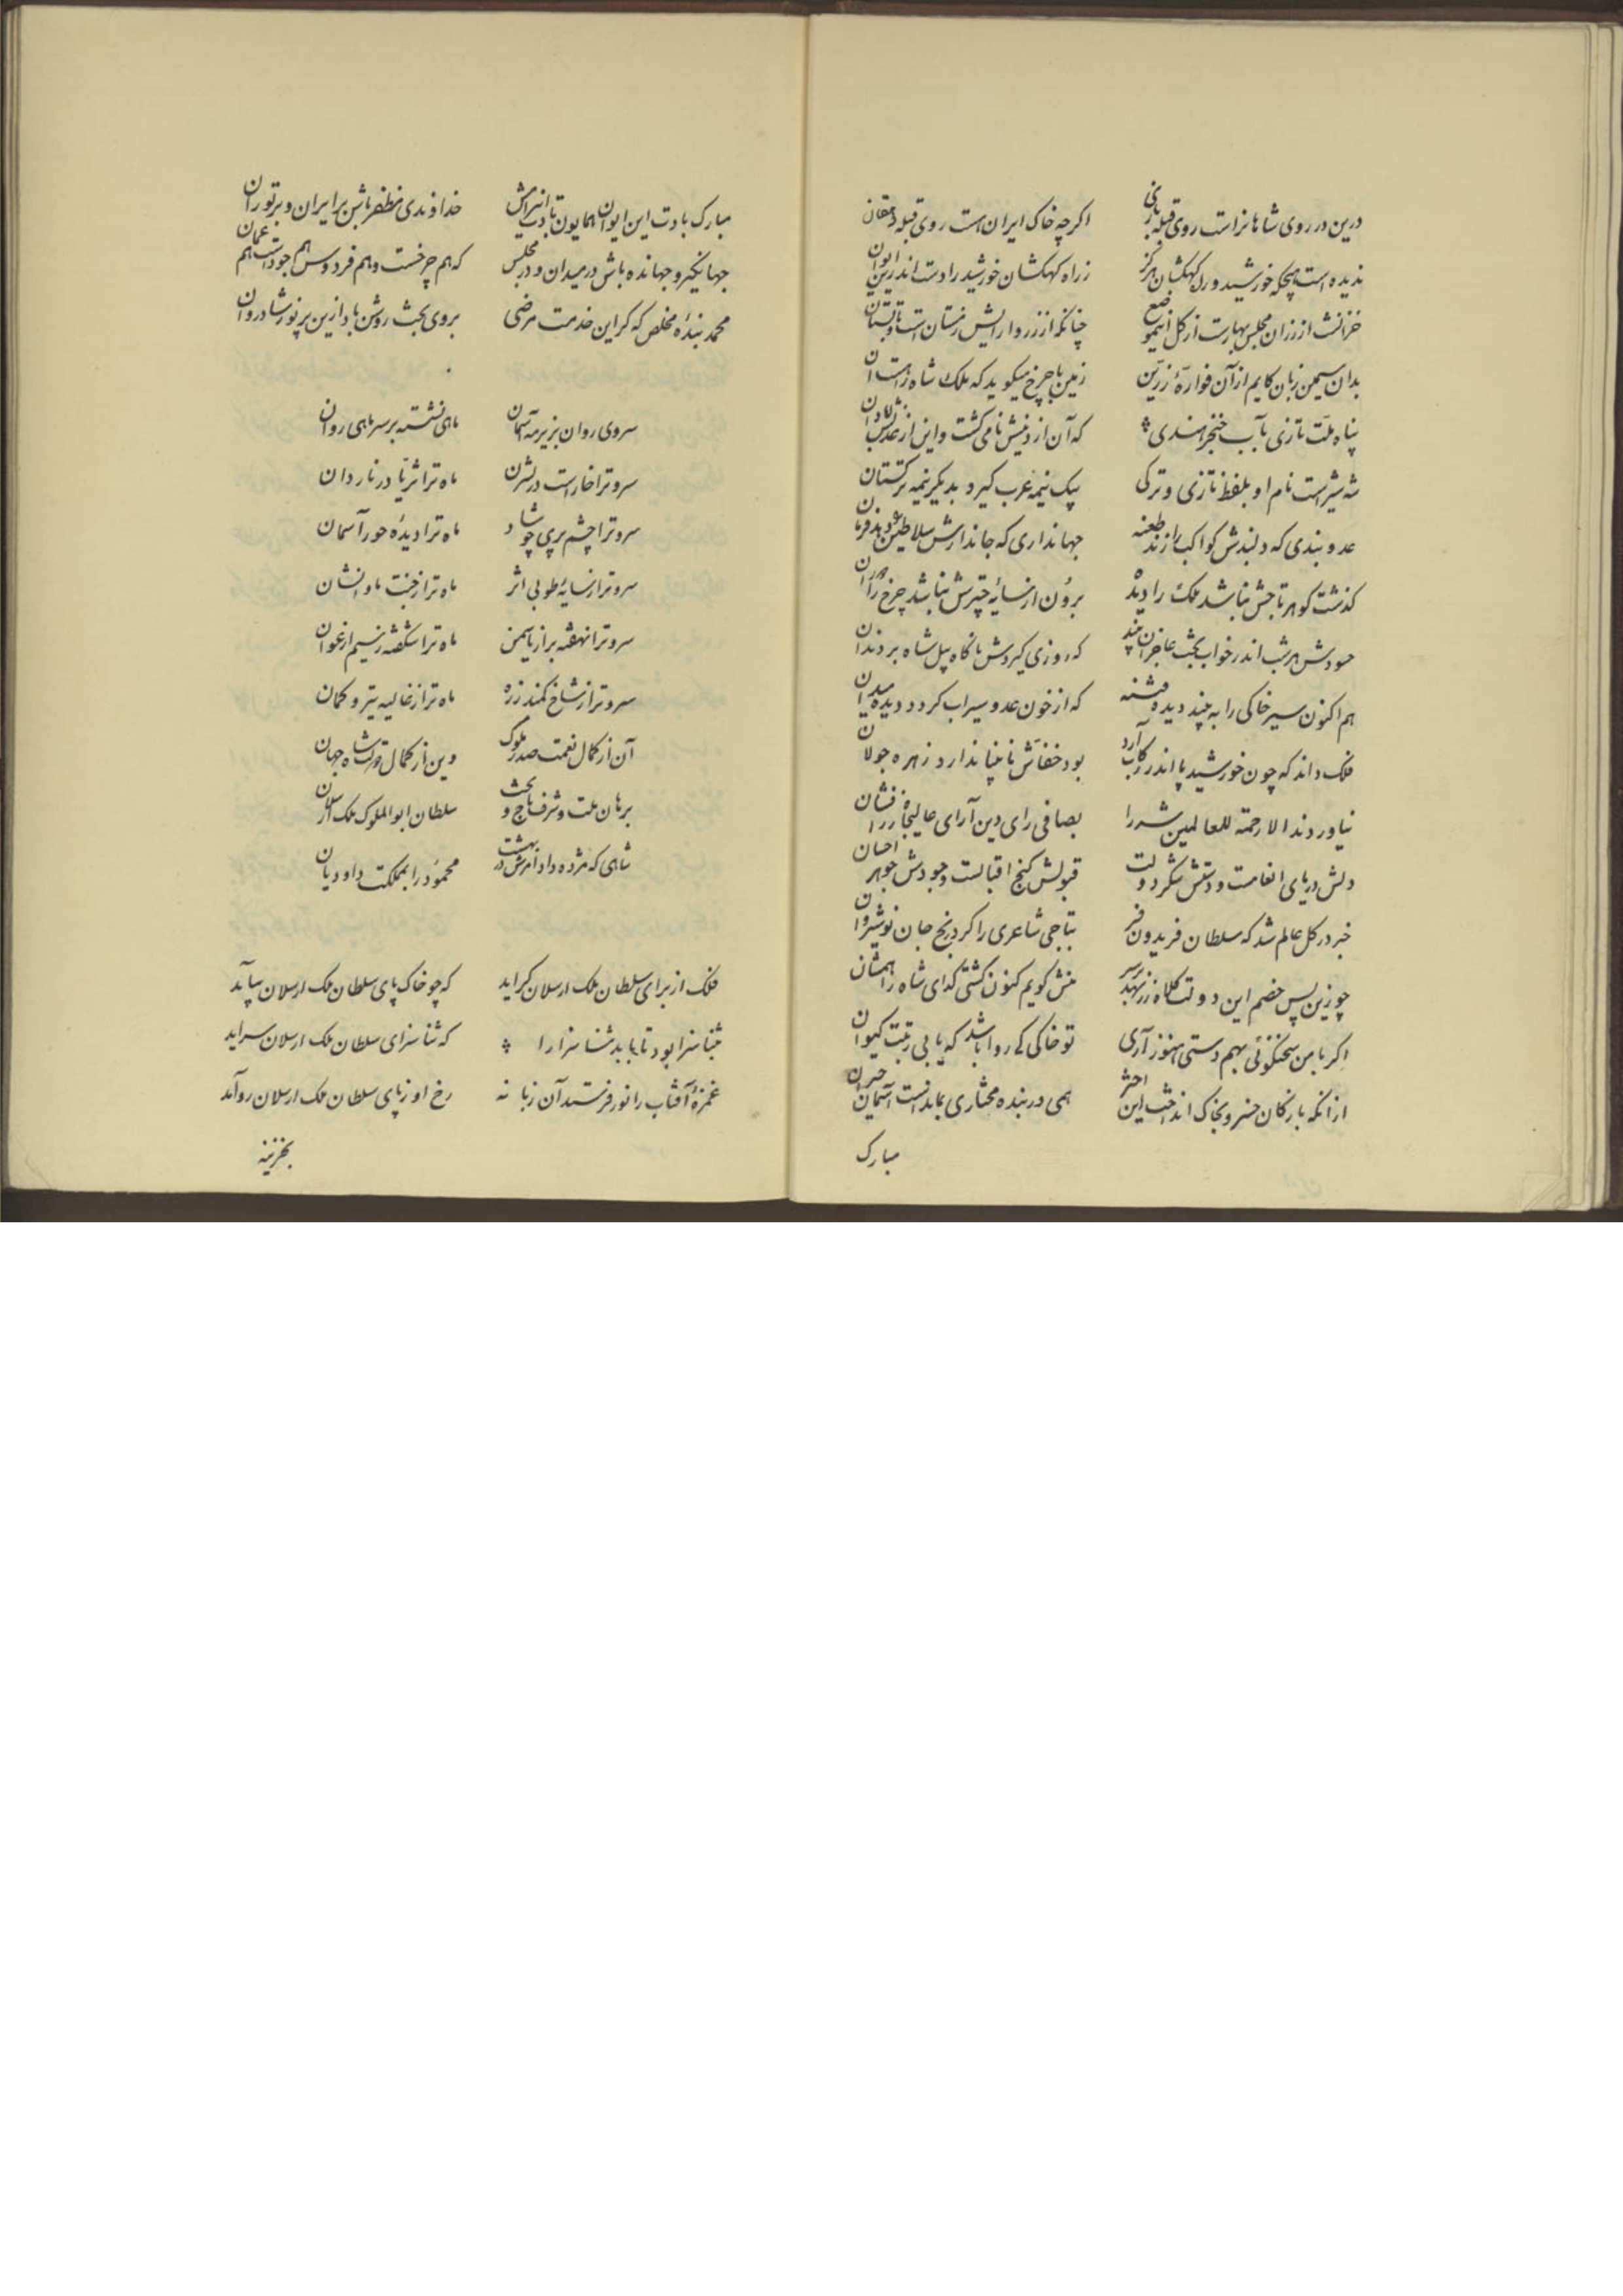 درین در روی شاهانراست روی قبله اگرچه خاک ایران است روی قبله دهقان
ندیده است هیچکه خورشید و راه کهکشان هرگز ز راه کهکشان خورشید را دست اندرین ایوان
خزانش از زران مجلس بهارت از گل چنانکه از زر و آرایش زمستان است و تابستان
بدان سیمین زبان کایم از آن فوارهٔ زرین زمین با چرخ میگوید که ملک شاه
پناه ملت تازی بآب خنجر هندی که آن از دنیش نامی گشت و این از عدلش آبادان
شه شیر است نام او بلفظ تازی و ترکی بیک نیمه عرب گیرد بدیگر نیمه ترکستان
عدو بندی که دلبندش کواکب را زند طعنه جهانداری که جاندارش سلاطین را
گذشت گوهر تاجش نباشد ملک را دیده برون از سایهٔ چترش نباشد چرخ را
حسودش هر شب اندر خواب بخت عاجزان بیند که روزی گیردش ناگاه پیل شاه بر دندان
هم اکنون سیر خاکی را به بیند دیده تشنه که از خون عدو سیراب گردد دیده میدان
فلک داند که چون خورشید پا اندر رکاب آرد بود خفاش نابینا ندارد زهره جولان
نیاوردند الا رحمة للعالمین شه را بصافی رای دین آرای عالیجاه
دلش دریای انعامست و دستش لشکر دولت قبولش گنج اقبالست وجودش جوهر احسان
خبر در کل عالم شد که سلطان فریدون فر بتاجی شاعری را کرد رنج جان نوشیروان
چو زین پس خصم این دولت کلاه زر نهد بر سر منش گویم کنون گشتی گدای شاه را
اگر با من سخنگوئی بهم دستی هنوز آری تو خاکی کی روا باشد که یابی رتبت کیوان
از آنکه بارکان خسرو بخاک انداخت این اختر همی در بنده مختاری بماندست آسمان حیران
مبارک
مبارک بادت این ایوان همایون بادت خداوندی مظفر باش بر ایران و بر توران
جهانگیر و جهانده باش در میدان و در مجلس که هم چرخست و هم فردوس هم جودست هم عمان
محمد بندهٔ مخلص که کر این خدمت مرضی بروی بخت روشن باد ازین پر نور شادروان
سروی روان بزیر مه آسمان ماهی نشسته بر سر ماهی روان
سرو ترا خار است در نسترن ماه ترا ثریا در ناردان
سرو ترا چشم پری ماه ترا دیدهٔ حور آسمان
سرو ترا ز سایهٔ طوبی اثر ماه ترا ز جنت ماوی نشان
سرو ترا نهفته براز یاسمن ماه ترا شکفته ز نسیم ارغوان
سرو ترا ز شاخ کمند زره ماه ترا ز غالیه تیر و کمان
آن از کمال نعمت صدر ملوک وین از کمال شاه جهان
برهان ملت و شرف تاج و تخت سلطان ابوالملوک ملک ارسلان
شاهی که مژده داد امرش در بهشت محمود را بمملکت داودیان
فلک از برای سلطان ملک ارسلان گراید که چو خاک پای سلطان ملک ارسلان بیاید
ثنا سزا بود تا بیابد ثنا سزا را که ثنا سزای سلطان ملک ارسلان سراید
غمزهٔ آفتاب را نور فرستد آن زبانه رخ او ز پای سلطان ملک ارسلان
بخزینه